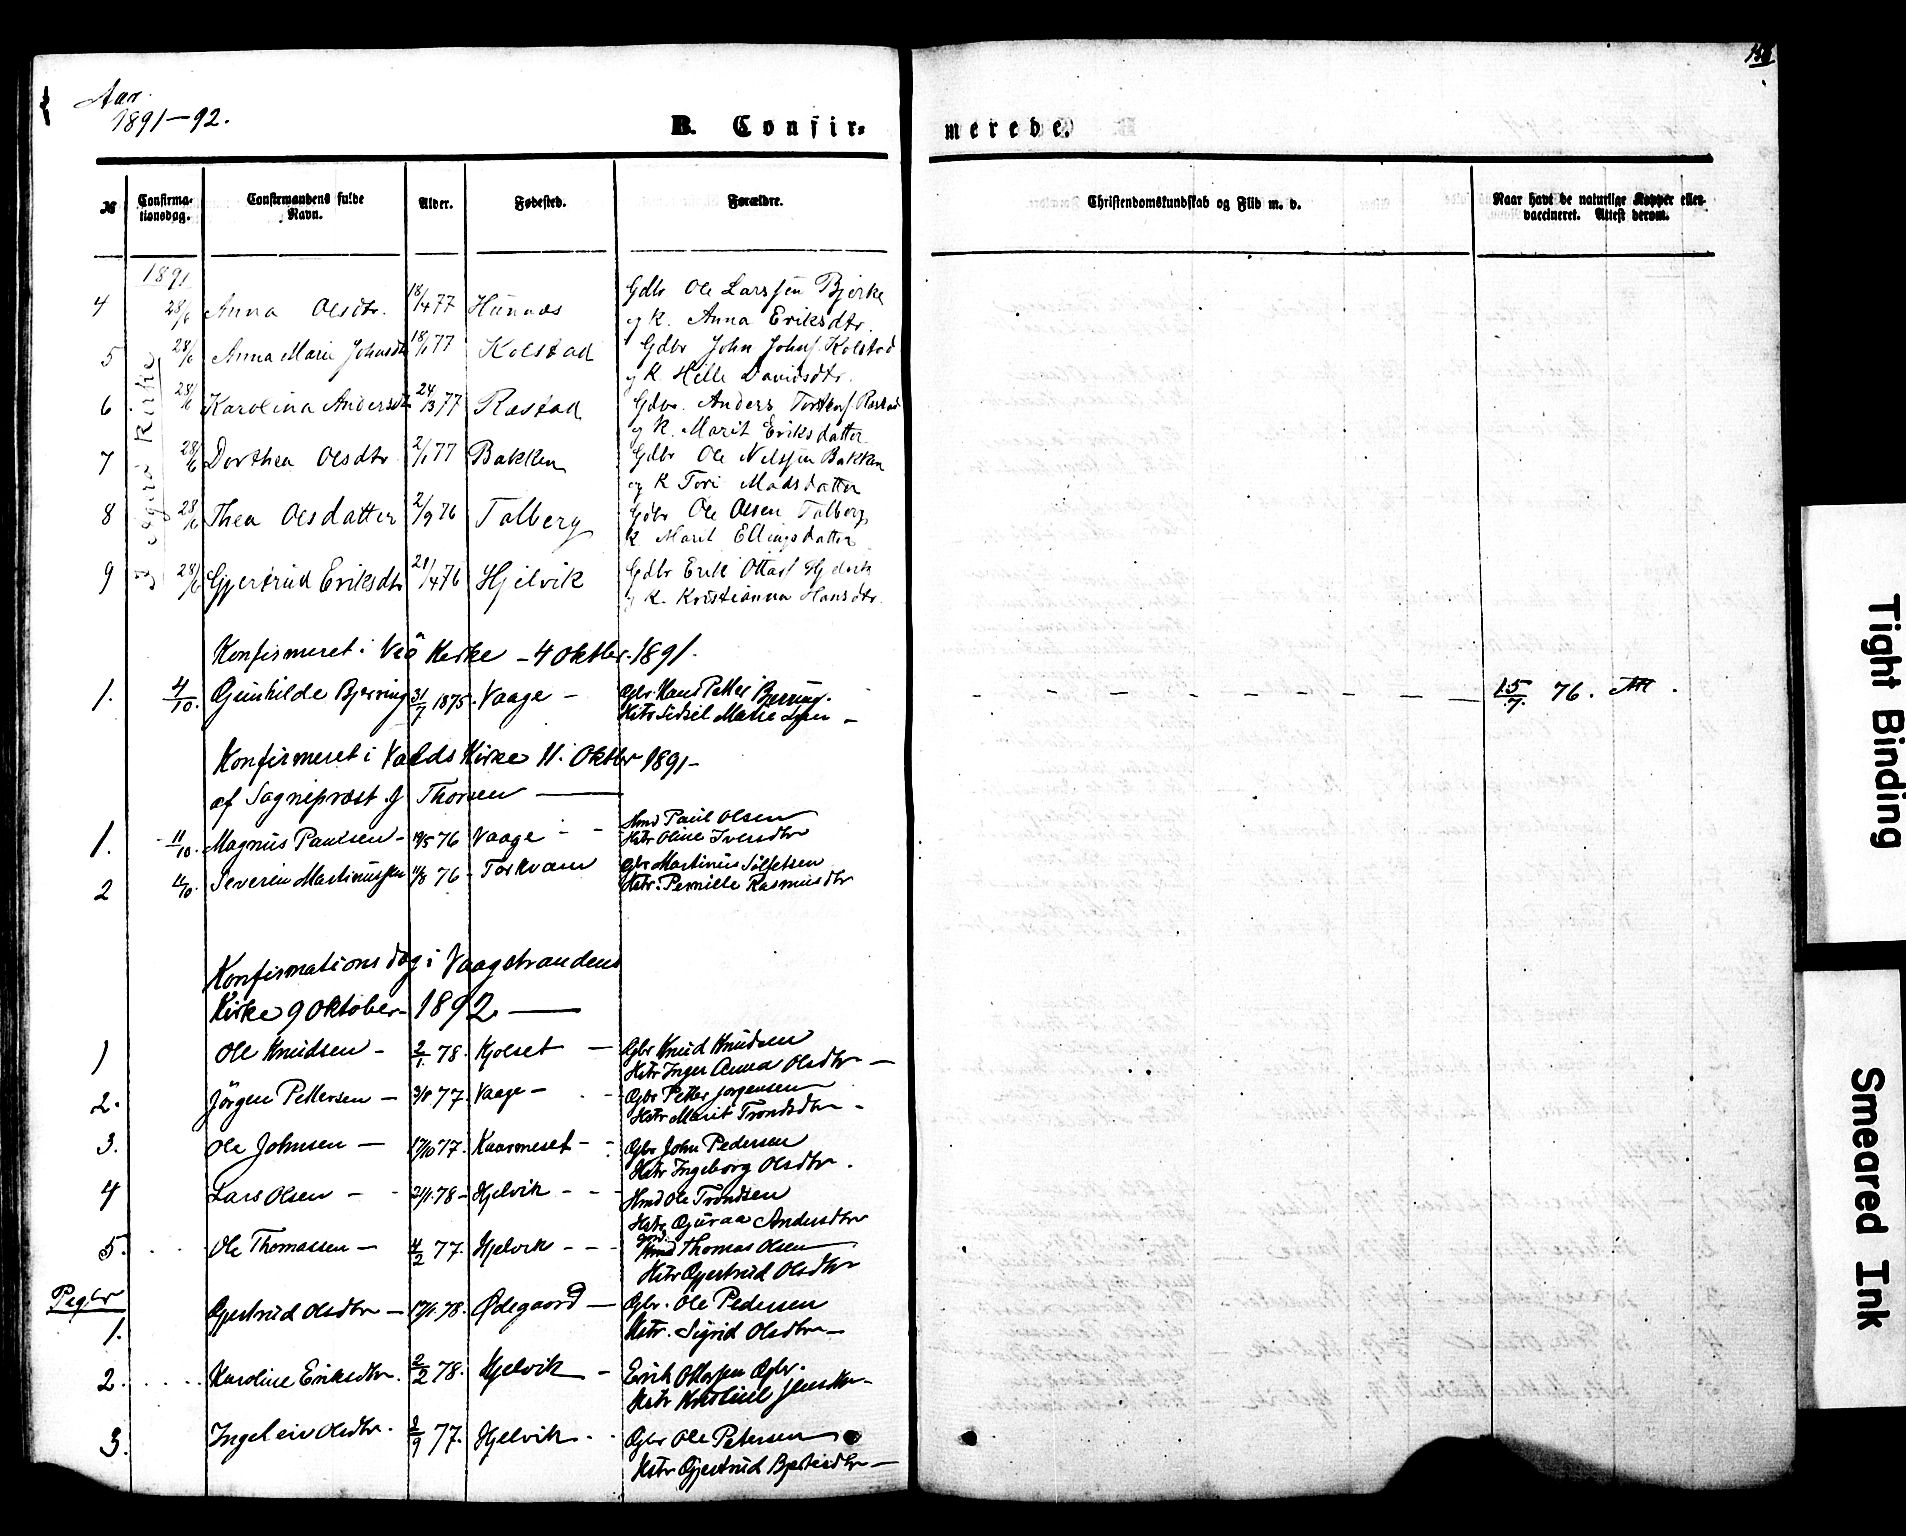 Aar.
1891-92.
B. Confir-
merede.
№ Confirma-tionsdag. Confirmandens fulde Navn. Alder. Fødested. Forældre. Christendomskundskab og Flid m. v. Naar havt de naturlige Kopper eller vaccineret. Attest derom.
1891
Kirke
4 28/6 Anna Olsdtr. 18/4 77 Hunnæs Gdbr Ole Larssen Bjerke
og K. Anna Eriksdtr.
5 28/6 Anna Marie Johnsdt 18/1 77 Kolstad Gdbr John Johns. Kolstad
og K. Helle Davidsdtr.
6 28/6 Karolina Andersdt 24/3 77 Ræstad Gdbr. Anders
og K. Marit Eriksdatter
7 28/6 Dorthea Olsdtr 2/1 77 Bakken Gdbr Ole Nilssen Bakken
og K Tori Madsdatter
8 28/6 Thea Olsdatter 2/9 76 Talberg Gdbr Ole Olsen Talberg
K Marit Ellingsdatter
9 28/6 Gjertrud Eriksdtr 21/4 76 Hjelvik Gdbr Erik Ottars. Hjelvik
og K. Kristianna Hansdtr.
Konfirmeret i Veø Kirke - 4 Oktbr. 1891.
1. 4/10. Gunhilde Bjerring 31/7 1875. Vaage - Gbr Hans Petter Bjerring.
Hstr Sidsel Marie -
15/7. 76. Att
Konfirmeret i Volds Kirke 11. Oktbr 1891-
af Sogneprest J Thorsen
1. 11/10. Magnus Paulsen - 19/5 76 Vaage - - Hmd Paul Olsen
Hstr Oline Iversdtr
2 11/10. Severin Martinussen 11/8 76 - Torkvam Gbr Martinus Sølfetsen
Hstr. Pernille Rasmusdtr
Konfirmationsdag i Vaagstrandens
Kirke 9 Oktober - 1892
1 Ole Knudsen - 2/1. 78. Kjølset - Gbr Knud Knudsen
Hstr Inger Anna Olsdtr -
2. Jørgen Pettersen - 3/8 77. Vaage - Gbr Petter Jørgensen
Hstr Marit Trondsdtr -
3. Ole Johnsen - 17/10 77. Kaarmeset - Gbr John Pedersen
Hstr Ingeborg Olsdtr.
4 Lars Olsen - - 21/1. 78 - Hjelvik - - - Hmd Ole Trondsen
Hstr Guraa Andersdtr
5. Ole Thomassen - 4/2 77. Hjelvik - - - Hmd Thomas Olsen
Hstr Gjertrud Olsdtr
Piger
1. Gjertrud Olsdtr - 17/1. 78. Ødegaard - Gbr. Ole Pedersen
Hstr. Sigrid Olsdtr -
2. Karoline Eriksdtr. 2/2 78. Hjelvik - Erik Ottarsen Gbr.
Hstr
3. Ingeleiv Olsdtr. 2/9 77. Hjelvik . . Gbr Ole Petersen
Hstr Gjertrud -
Tight Binding
Smeared Ink